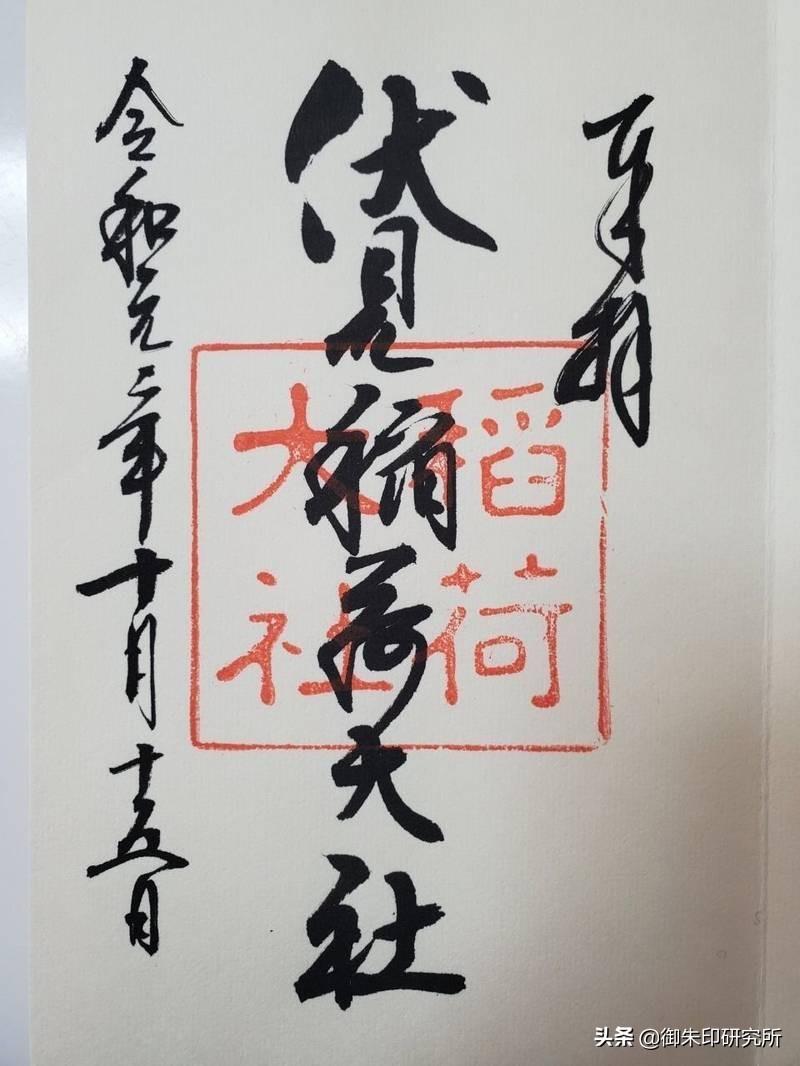 奉拝
伏見稲荷大社
令和元年十月十五日
稲荷
大社
头条 @御朱印研究所